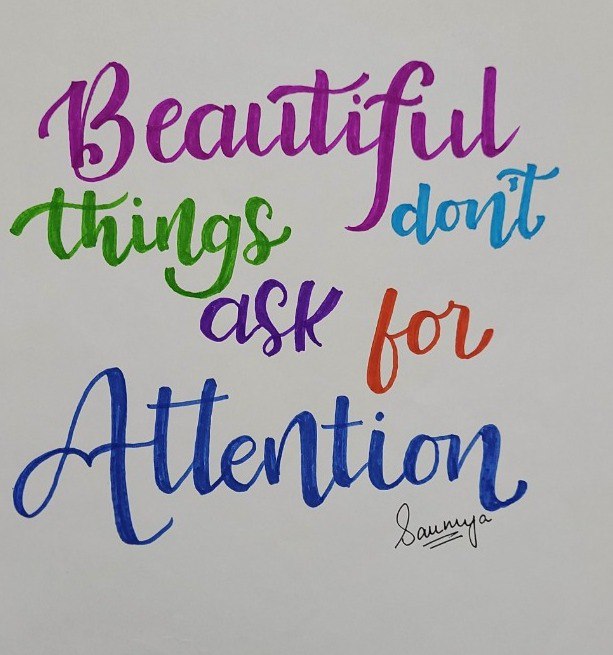 Beautiful
things don't
ask for
Attention
Saumya